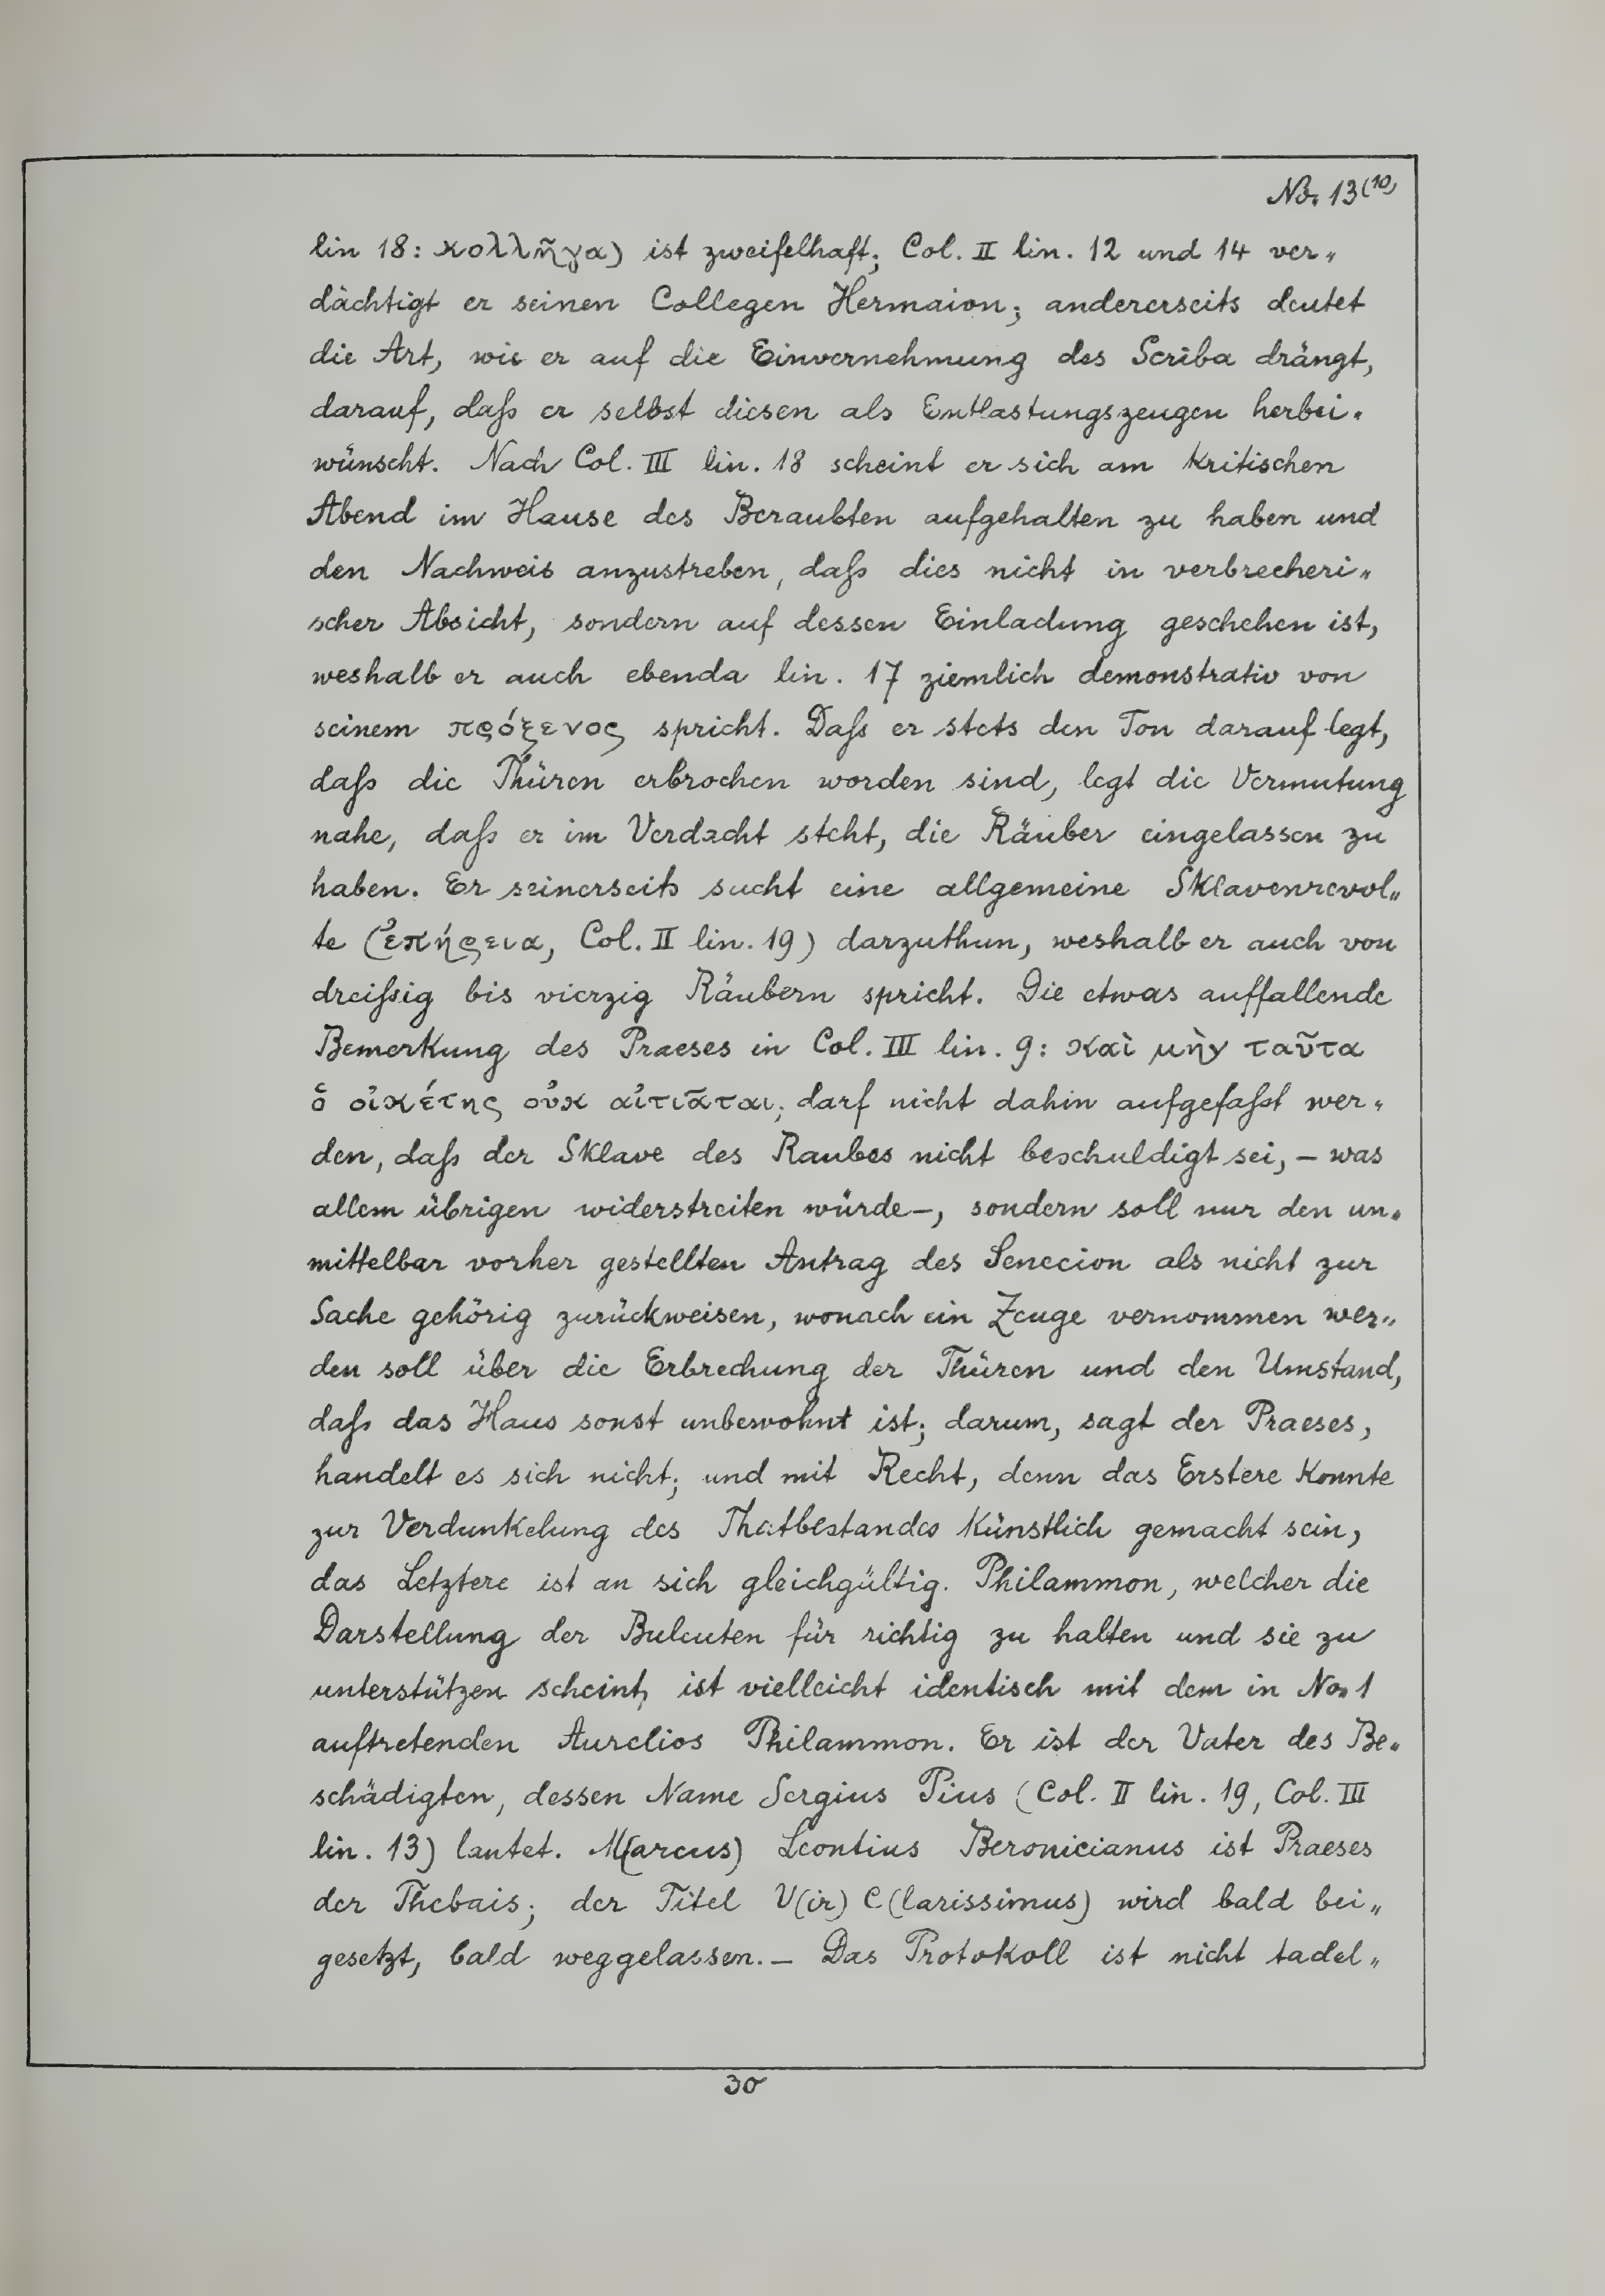 No. 13 (10)
lin 18: κολλῆγα) ist zweifelhaft; Col. II lin. 12 und 14 ver„
dächtigt er seinen Collegen Hermaion; andererseits deutet
die Art, wie er auf die Einvernehmung des Scriba drängt,
darauf, daß er selbst diesen als Entlastungszeugen herbei„
wünscht. Nach Col. III lin. 18 scheint er sich am kritischen
Abend im Hause des Beraubten aufgehalten zu haben und
den Nachweis anzustreben, daß dies nicht in verbrecheri„
scher Absicht, sondern auf dessen Einladung geschehen ist,
weshalb er auch ebenda lin. 17 ziemlich demonstrativ von
seinem πρόξενος spricht. Daß er stets den Ton darauf legt,
daß die Thüren erbrochen worden sind, legt die Vermutung
nahe, daß er im Verdacht steht, die Räuber eingelassen zu
haben. Er seinerseits sucht eine allgemeine Sklavenrevol„
te (ἐπήρεια, Col. II lin. 19) darzuthun, weshalb er auch von
dreißig bis vierzig Räubern spricht. Die etwas auffallende
Bemerkung des Praeses in Col. III lin. 9: καὶ μὴν ταῦτα
ὁ οἰκέτης οὐκ αἰτιᾶται; darf nicht dahin aufgefaßt wer„
den, daß der Sklave des Raubes nicht beschuldigt sei, – was
allem übrigen widerstreiten würde –, sondern soll nur den un„
mittelbar vorher gestellten Antrag des Senecion als nicht zur
Sache gehörig zurückweisen, wonach ein Zeuge vernommen wer„
den soll über die Erbrechung der Thüren und den Umstand,
daß das Haus sonst unbewohnt ist; darum, sagt der Praeses,
handelt es sich nicht; und mit Recht, denn das Erstere konnte
zur Verdunkelung des Thatbestandes künstlich gemacht sein,
das Letztere ist an sich gleichgültig. Philammon, welcher die
Darstellung der Buleuten für richtig zu halten und sie zu
unterstützen scheint, ist vielleicht identisch mit dem in No. 1
auftretenden Aurelios Philammon. Er ist der Vater des Be„
schädigten, dessen Name Sergius Pius (Col. II lin. 19, Col. III
lin. 13) lautet. M(arcus) Leontius Beronicianus ist Praeses
der Thebais; der Titel V(ir) C(larissimus) wird bald bei„
gesetzt, bald weggelassen. – Das Protokoll ist nicht tadel„
30